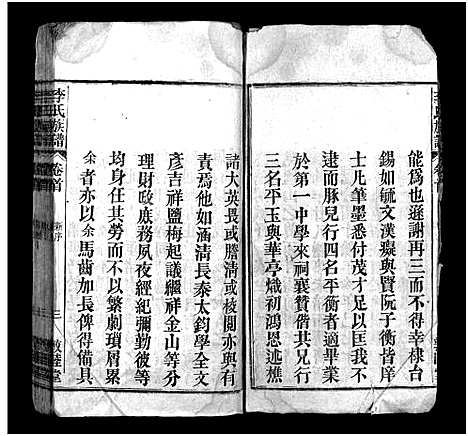 能爲也遜謝再三而不得幸棣台
錫如毓文漢癡與賢阮子衡皆庠
士凡筆墨悉付茂才足以匡我不
逮而豚兒行四名平衡者適畢業
於第一中學來祠襄贊偕其兄行
三名平玉與華亭熾初鴻恩述樵
諸大英畏或謄清或校閱亦與有
責焉他如涵清長泰太鈞學全文
彥吉祥鹽梅起議繼祥金山等分
理財政庶務夙夜經紀彌勤彼等
均身任其勞而不以繁劇瑣屑累
余者亦以余馬齒加長俾得備員
李氏族譜
卷首
新序
三
堂